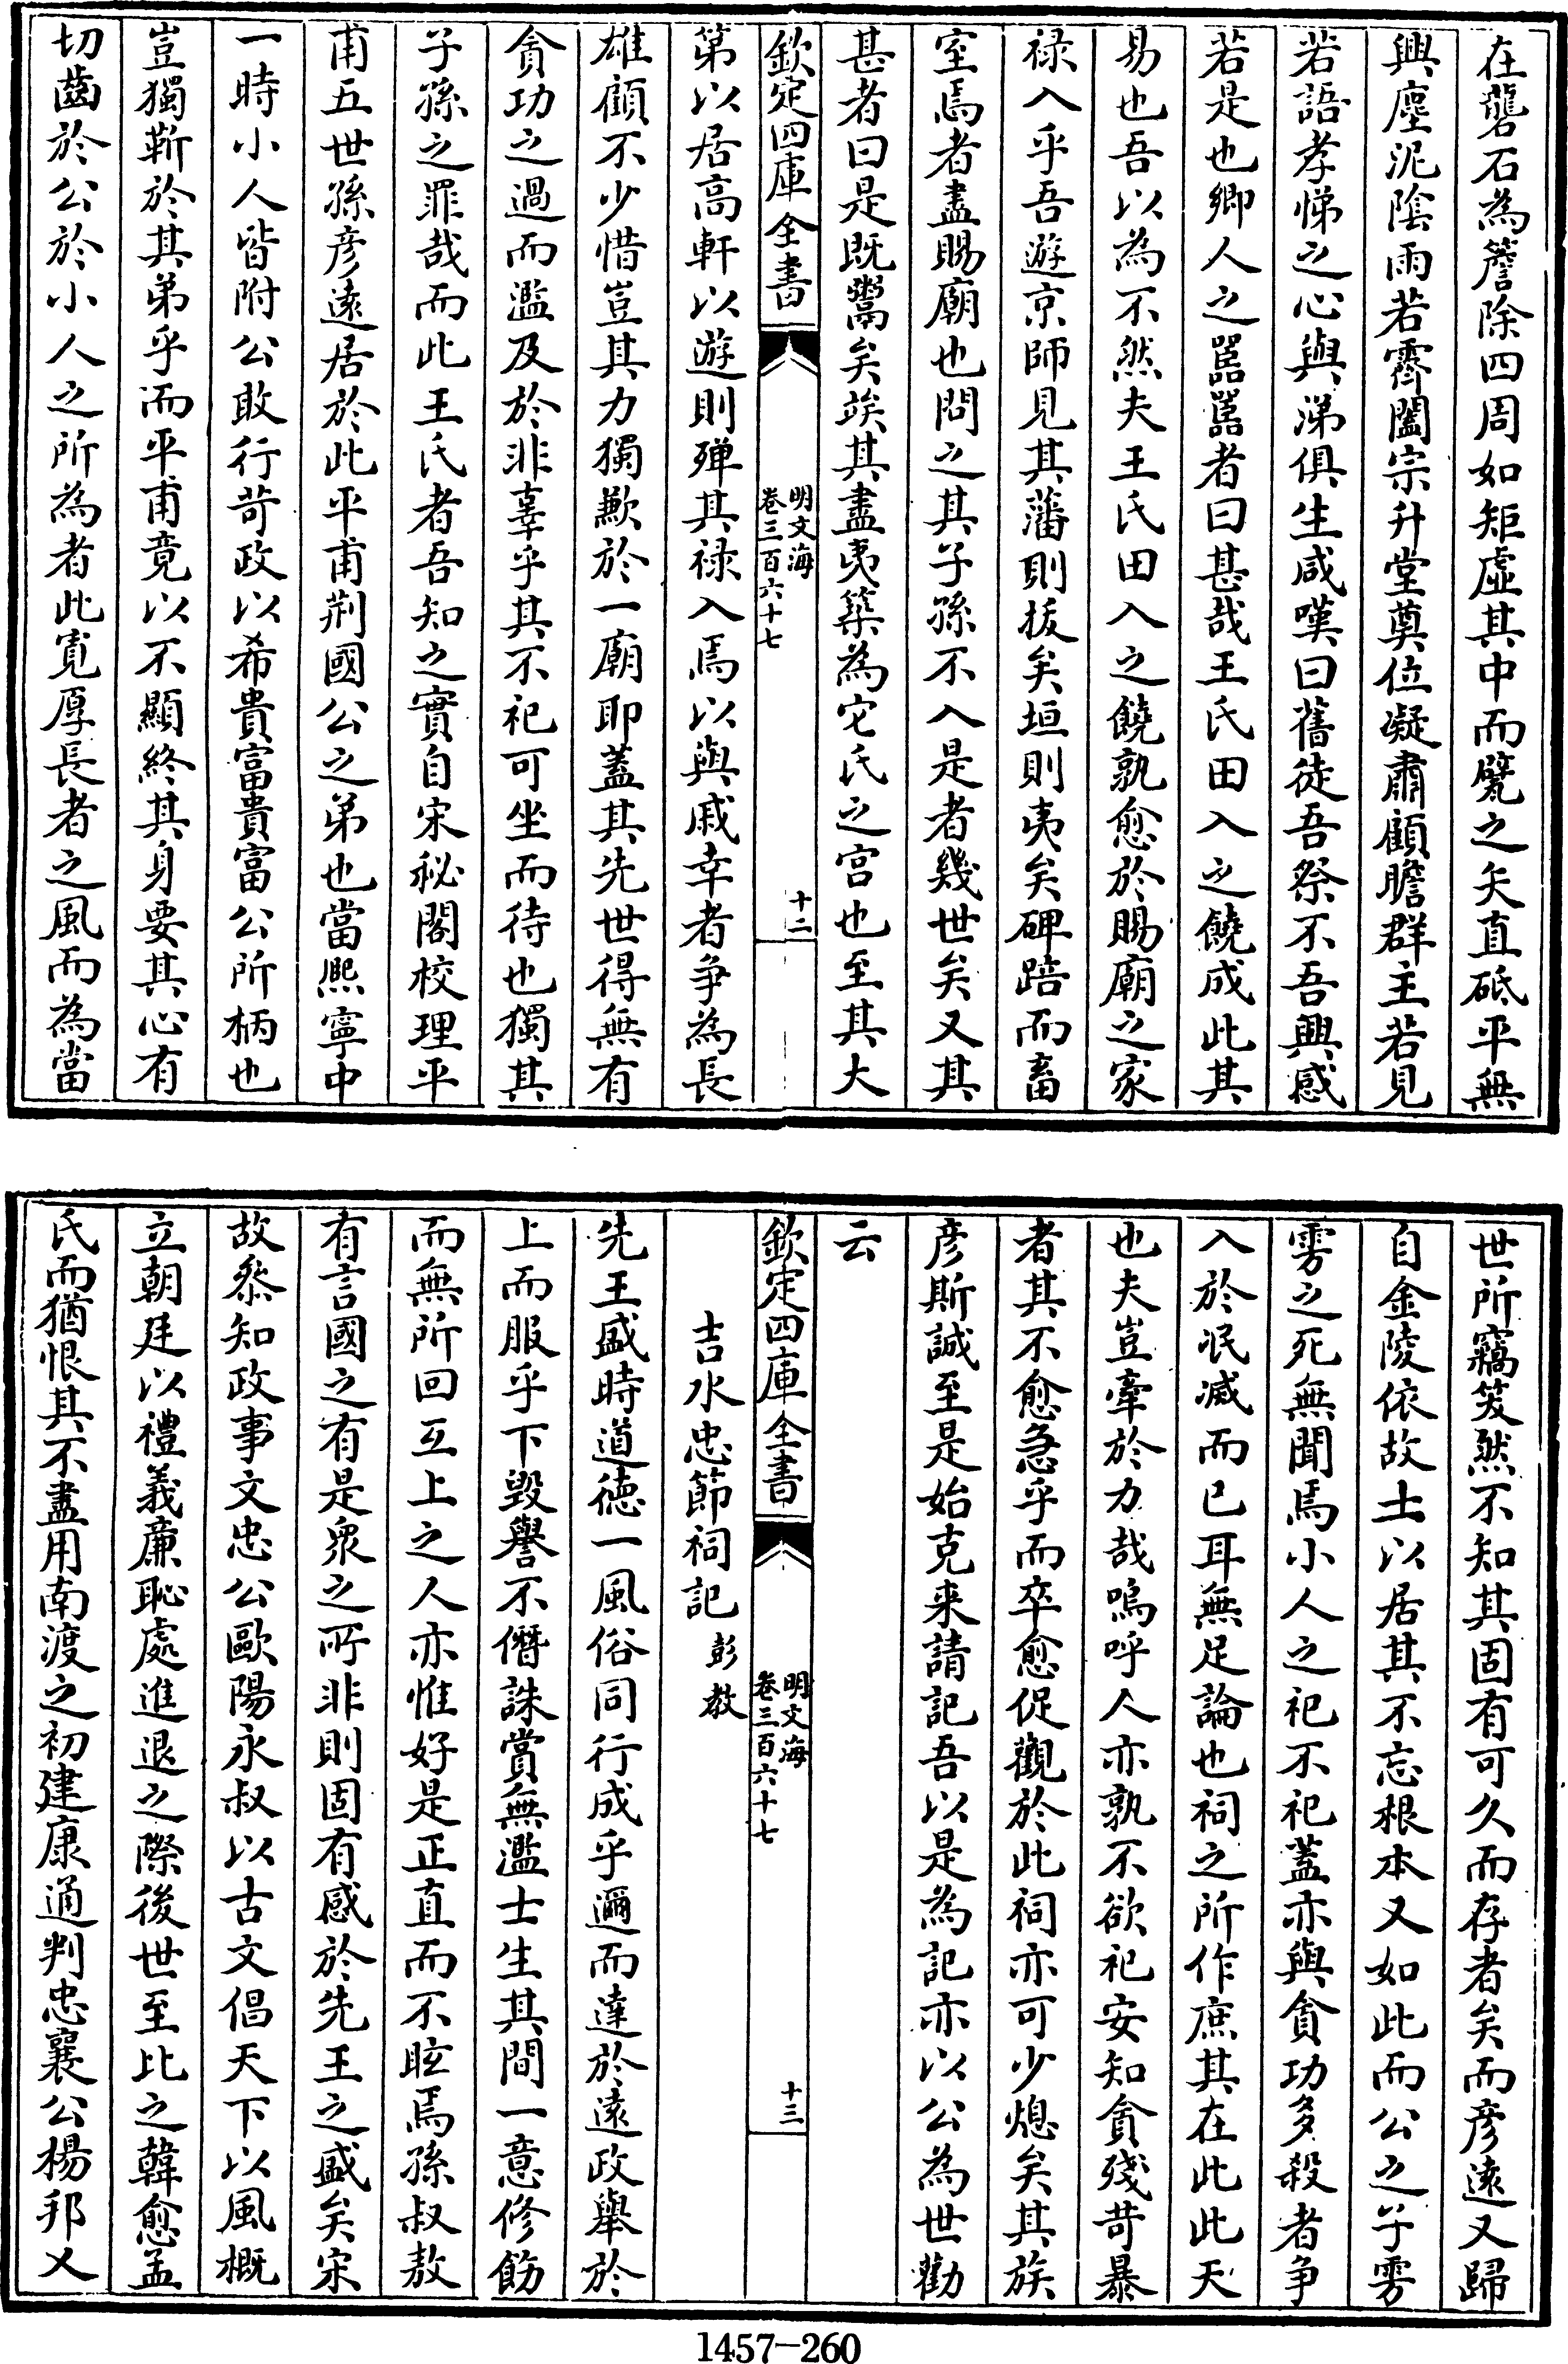 在礱石為簷除四周如矩虛其中而甓之矢直砥平無
興塵泥陰雨若霽闔宗升堂奠位凝肅顧瞻群主若見
若語孝悌之心與涕俱生咸嘆曰舊徒吾祭不吾興感
若是也鄉人之嚚嚚者曰甚哉王氏田入之饒成此其
易也吾以為不然夫王氏田入之饒孰愈於賜廟之家
禄入乎吾遊京師見其藩則拔矣垣則夷矣碑踣而畜
室焉者盡賜廟也問之其子孫不入是者幾世矣又其
甚者曰是既鬻矣竢其盡夷築為它氏之宫也至其大
欽定四庫全書
明文海
卷三百六十七
十二
第以居高軒以遊則殫其禄入焉以與戚幸者爭為長
雄顧不少惜豈其力獨歉於一廟耶蓋其先世得無有
貪功之過而濫及於非辜乎其不祀可坐而待也獨其
子孫之罪哉而此王氏者吾知之實自宋秘閣校理平
甫五世孫彦遠居於此平甫荆國公之弟也當熙寧中
一時小人皆附公敢行苛政以希貴富貴富公所柄也
豈獨靳於其弟乎而平甫竟以不顯終其身要其心有
切齒於公於小人之所為者此寛厚長者之風而為當
世所竊笑然不知其固有可久而存者矣而彦遠又歸
自金陵依故土以居其不忘根本又如此而公之子雱
雱之死無聞焉小人之祀不祀蓋亦與貪功多殺者爭
入於泯滅而已耳無足論也祠之所作庶其在此此天
也夫豈牽於力哉嗚呼人亦孰不欲祀安知貪殘苛暴
者其不愈急乎而卒愈促觀於此祠亦可少熄矣其族
彦斯誠至是始克来請記吾以是為記亦以公為世勸
云
欽定四庫全書
明文海
卷三百六十七
十三
吉水忠節祠記 彭教
先王盛時道德一風俗同行成乎邇而達於遠政舉於
上而服乎下毁譽不僭誅賞無濫士生其間一意修飭
而無所回互上之人亦惟好是正直而不眩焉孫叔敖
有言國之有是衆之所非則固有感於先王之盛矣宋
故叅知政事文忠公歐陽永叔以古文倡天下以風概
立朝廷以禮義廉恥處進退之際後世至比之韓愈孟
氏而猶恨其不盡用南渡之初建康通判忠襄公楊邦乂
1457-260